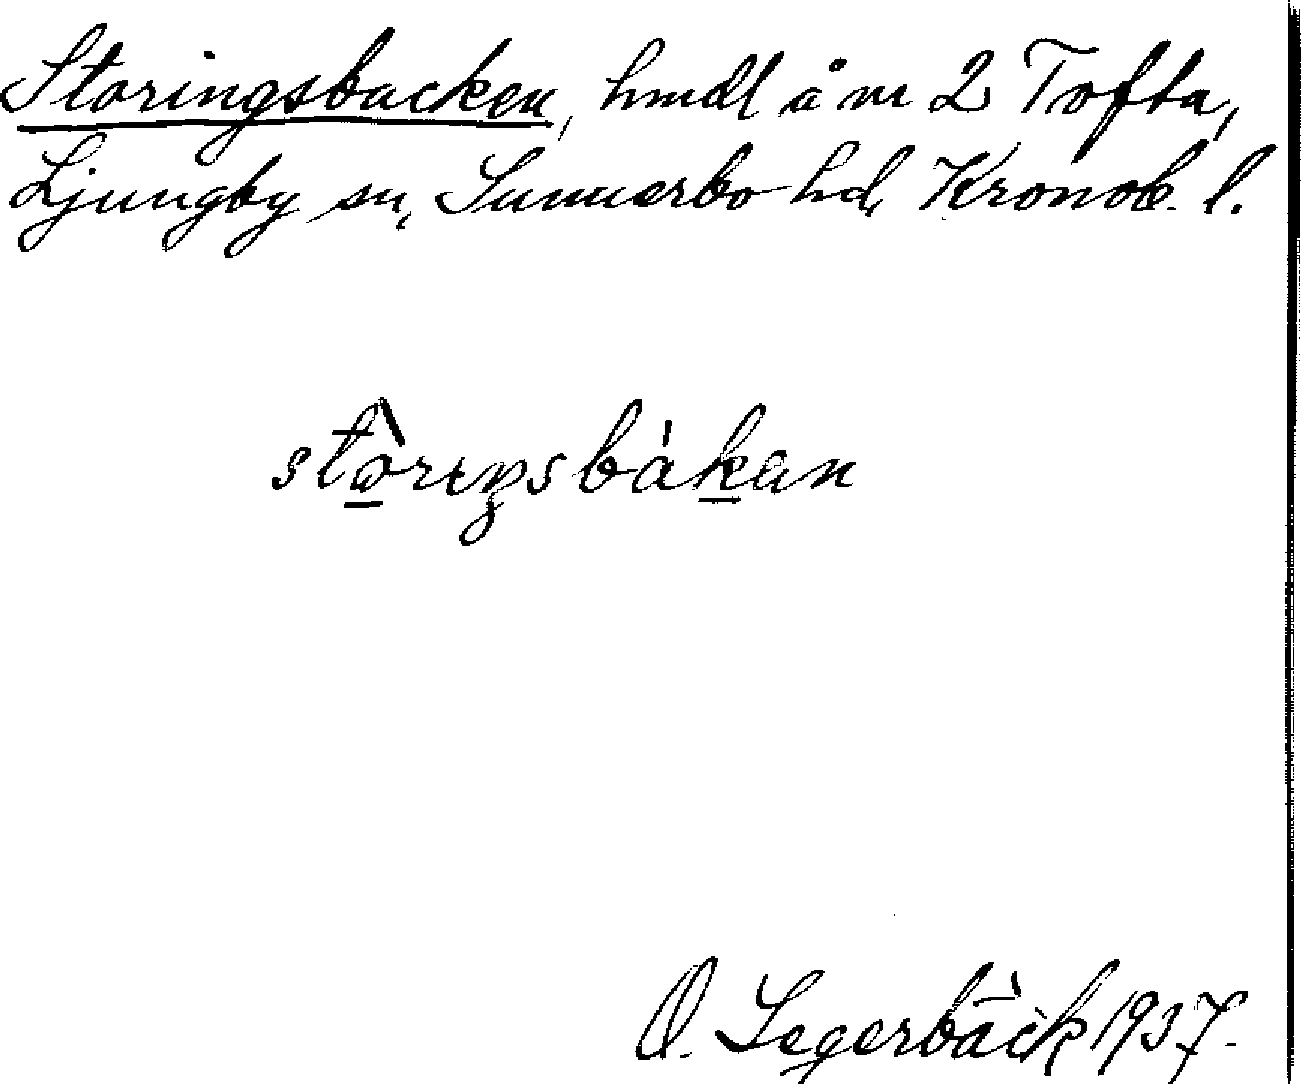 Storingsbacken, hmdl å nr 2 Tofta,
Ljungby sn, Sunnerbo hd, Kronob. l.
stòrıŋsbákan
O. Segerbäck 1937.